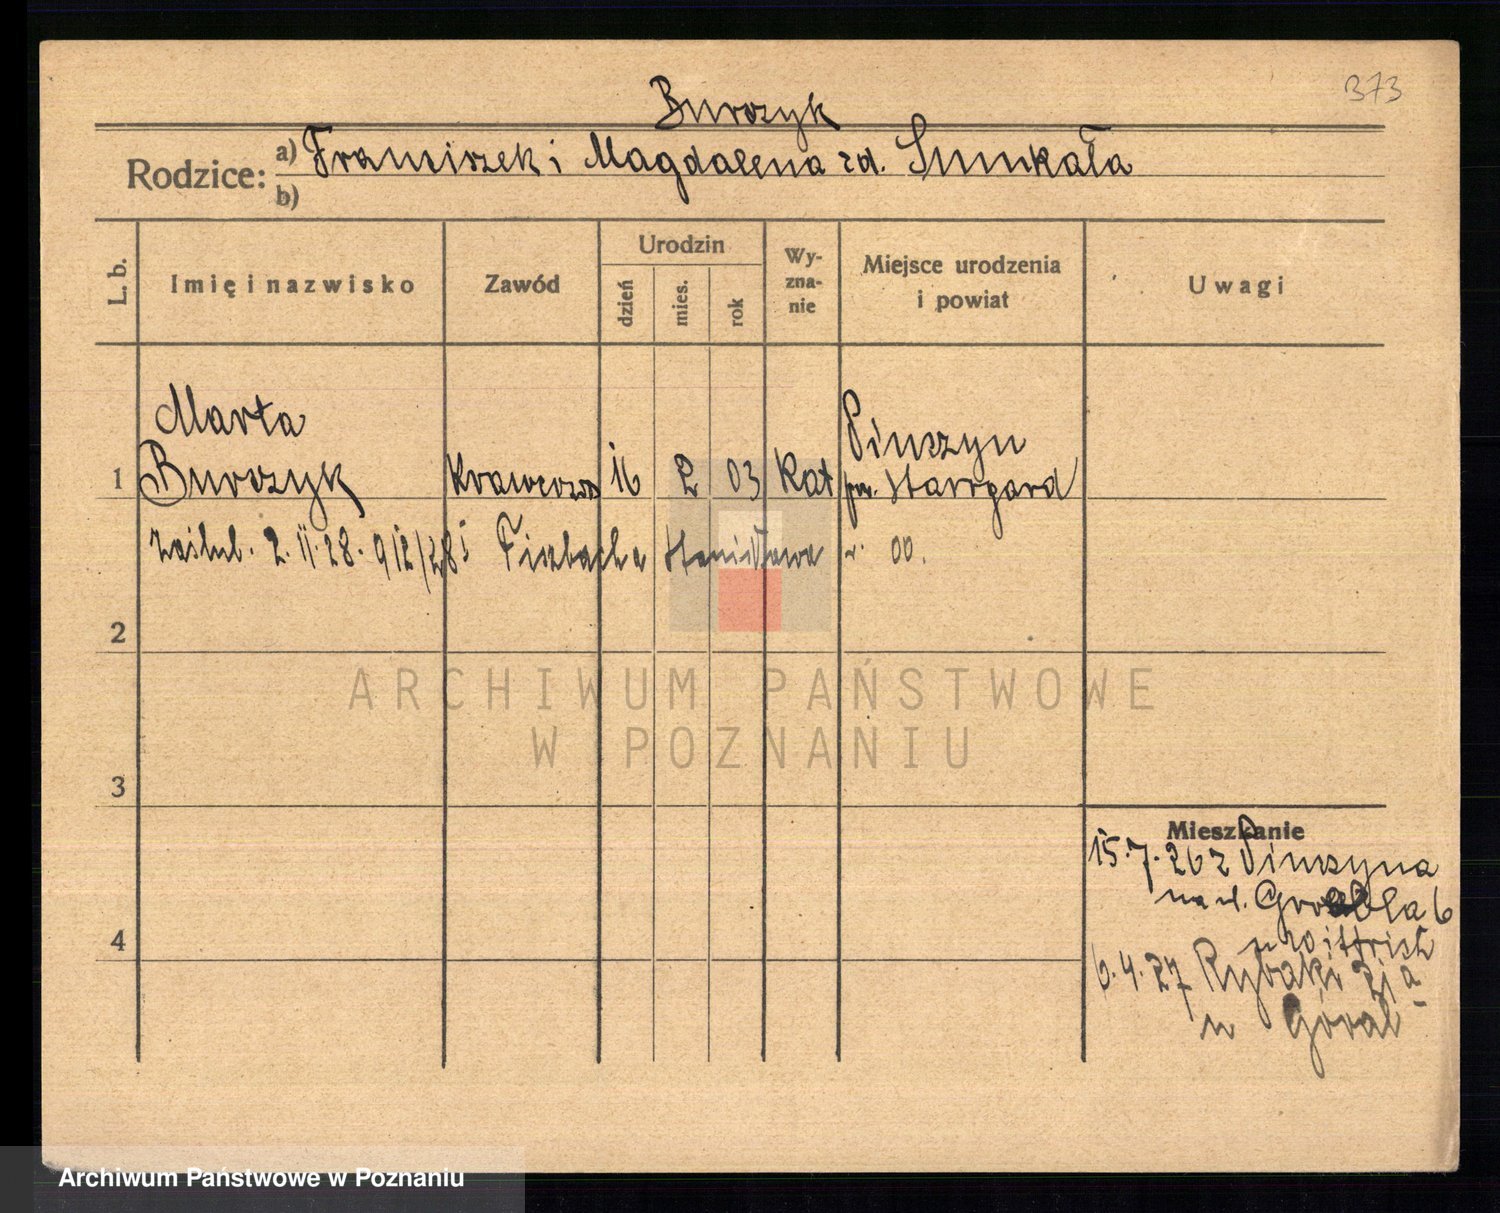 373
Burczyk
Rodzice: a) Franciszek i Magdalena zd. Smukała
b)
L. b.
Imię i nazwisko
Zawód
Urodzin
dzień
mies.
rok
Wy-
zna-
nie
Miejsce urodzenia
i powiat
Uwagi
Marta
Burczyk
1
Krawcowa 16 2 03 Kat
Pinczyn
pow. Starogard
zaślub. 2. II. 28. Fiszbacha Stanisława r. 00.
2
3
4
Mieszkanie
15.7.26 z Pinczyna
na ul. Grobla 6
6.4.27 Rybaki
u Góral
ARCHIWUM PAŃSTWOWE
W POZNANIU
Archiwum Państwowe w Poznaniu